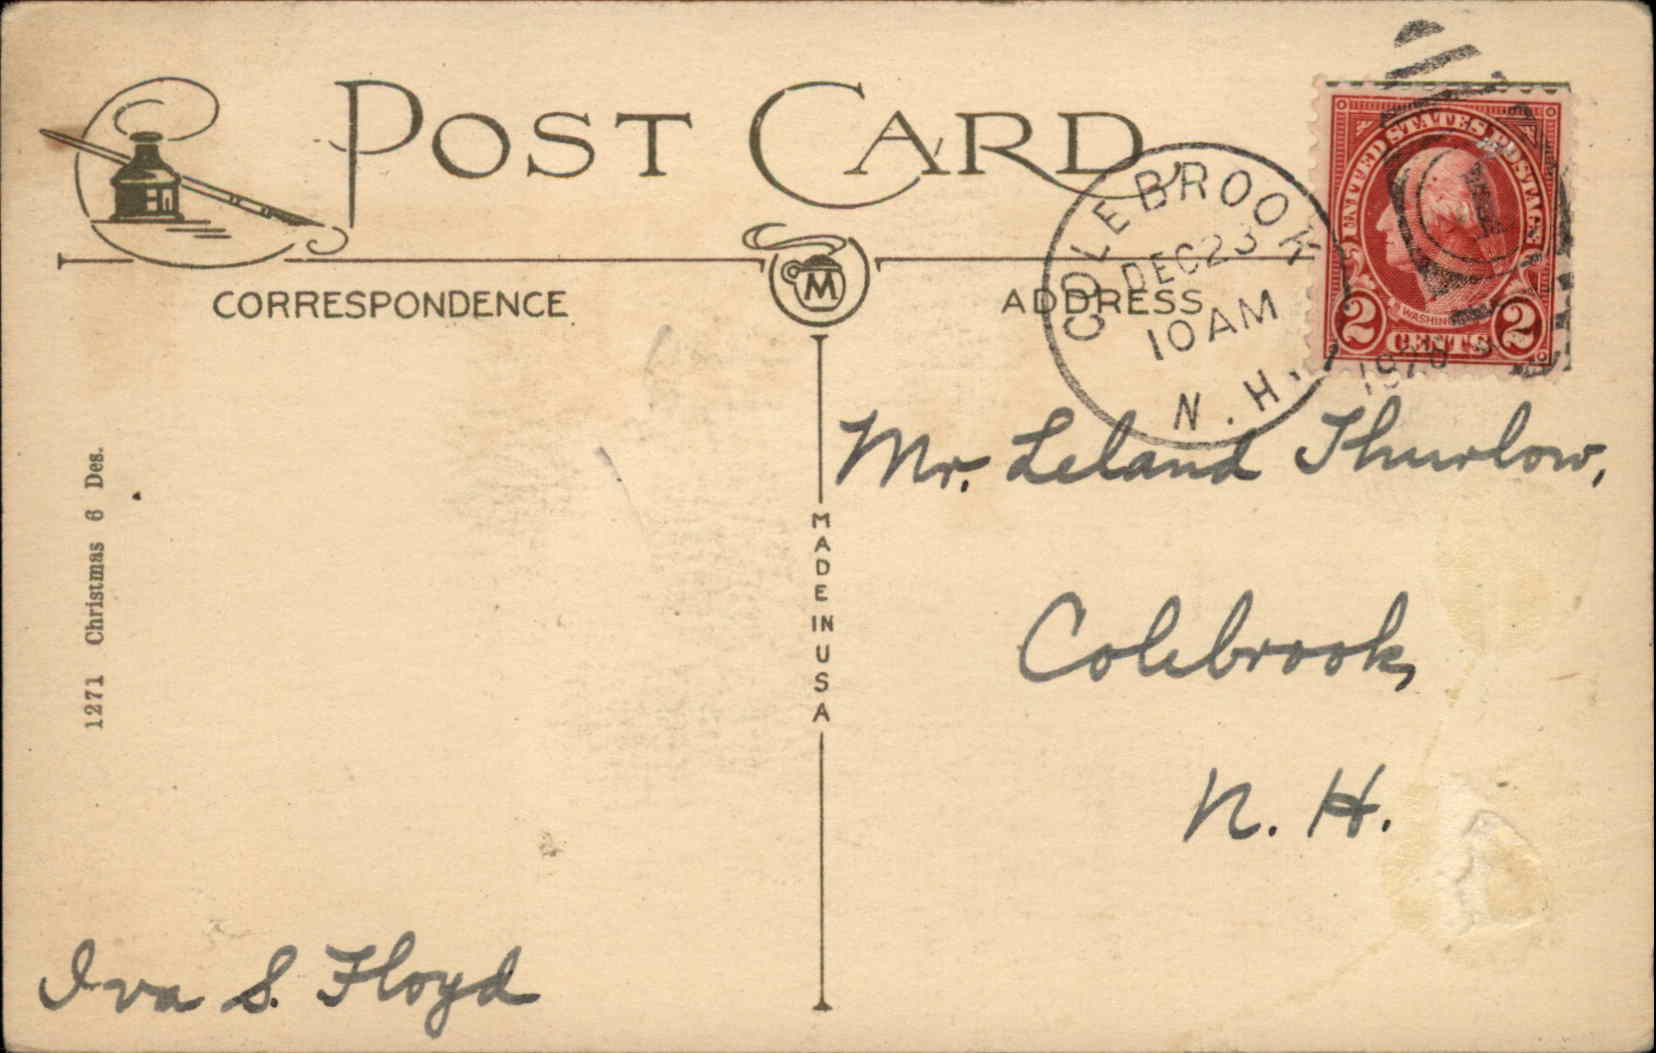 POST CARD
CORRESPONDENCE
M
ADDRESS
COLEBROOK
DEC 23
10 AM
N.H.
UNITED STATES POSTAGE
2 CENTS 2
Mr. Leland Thurlow,
Colebrook,
N. H.
MADE IN USA
1271 Christmas 6 Des.
Iva S. Floyd